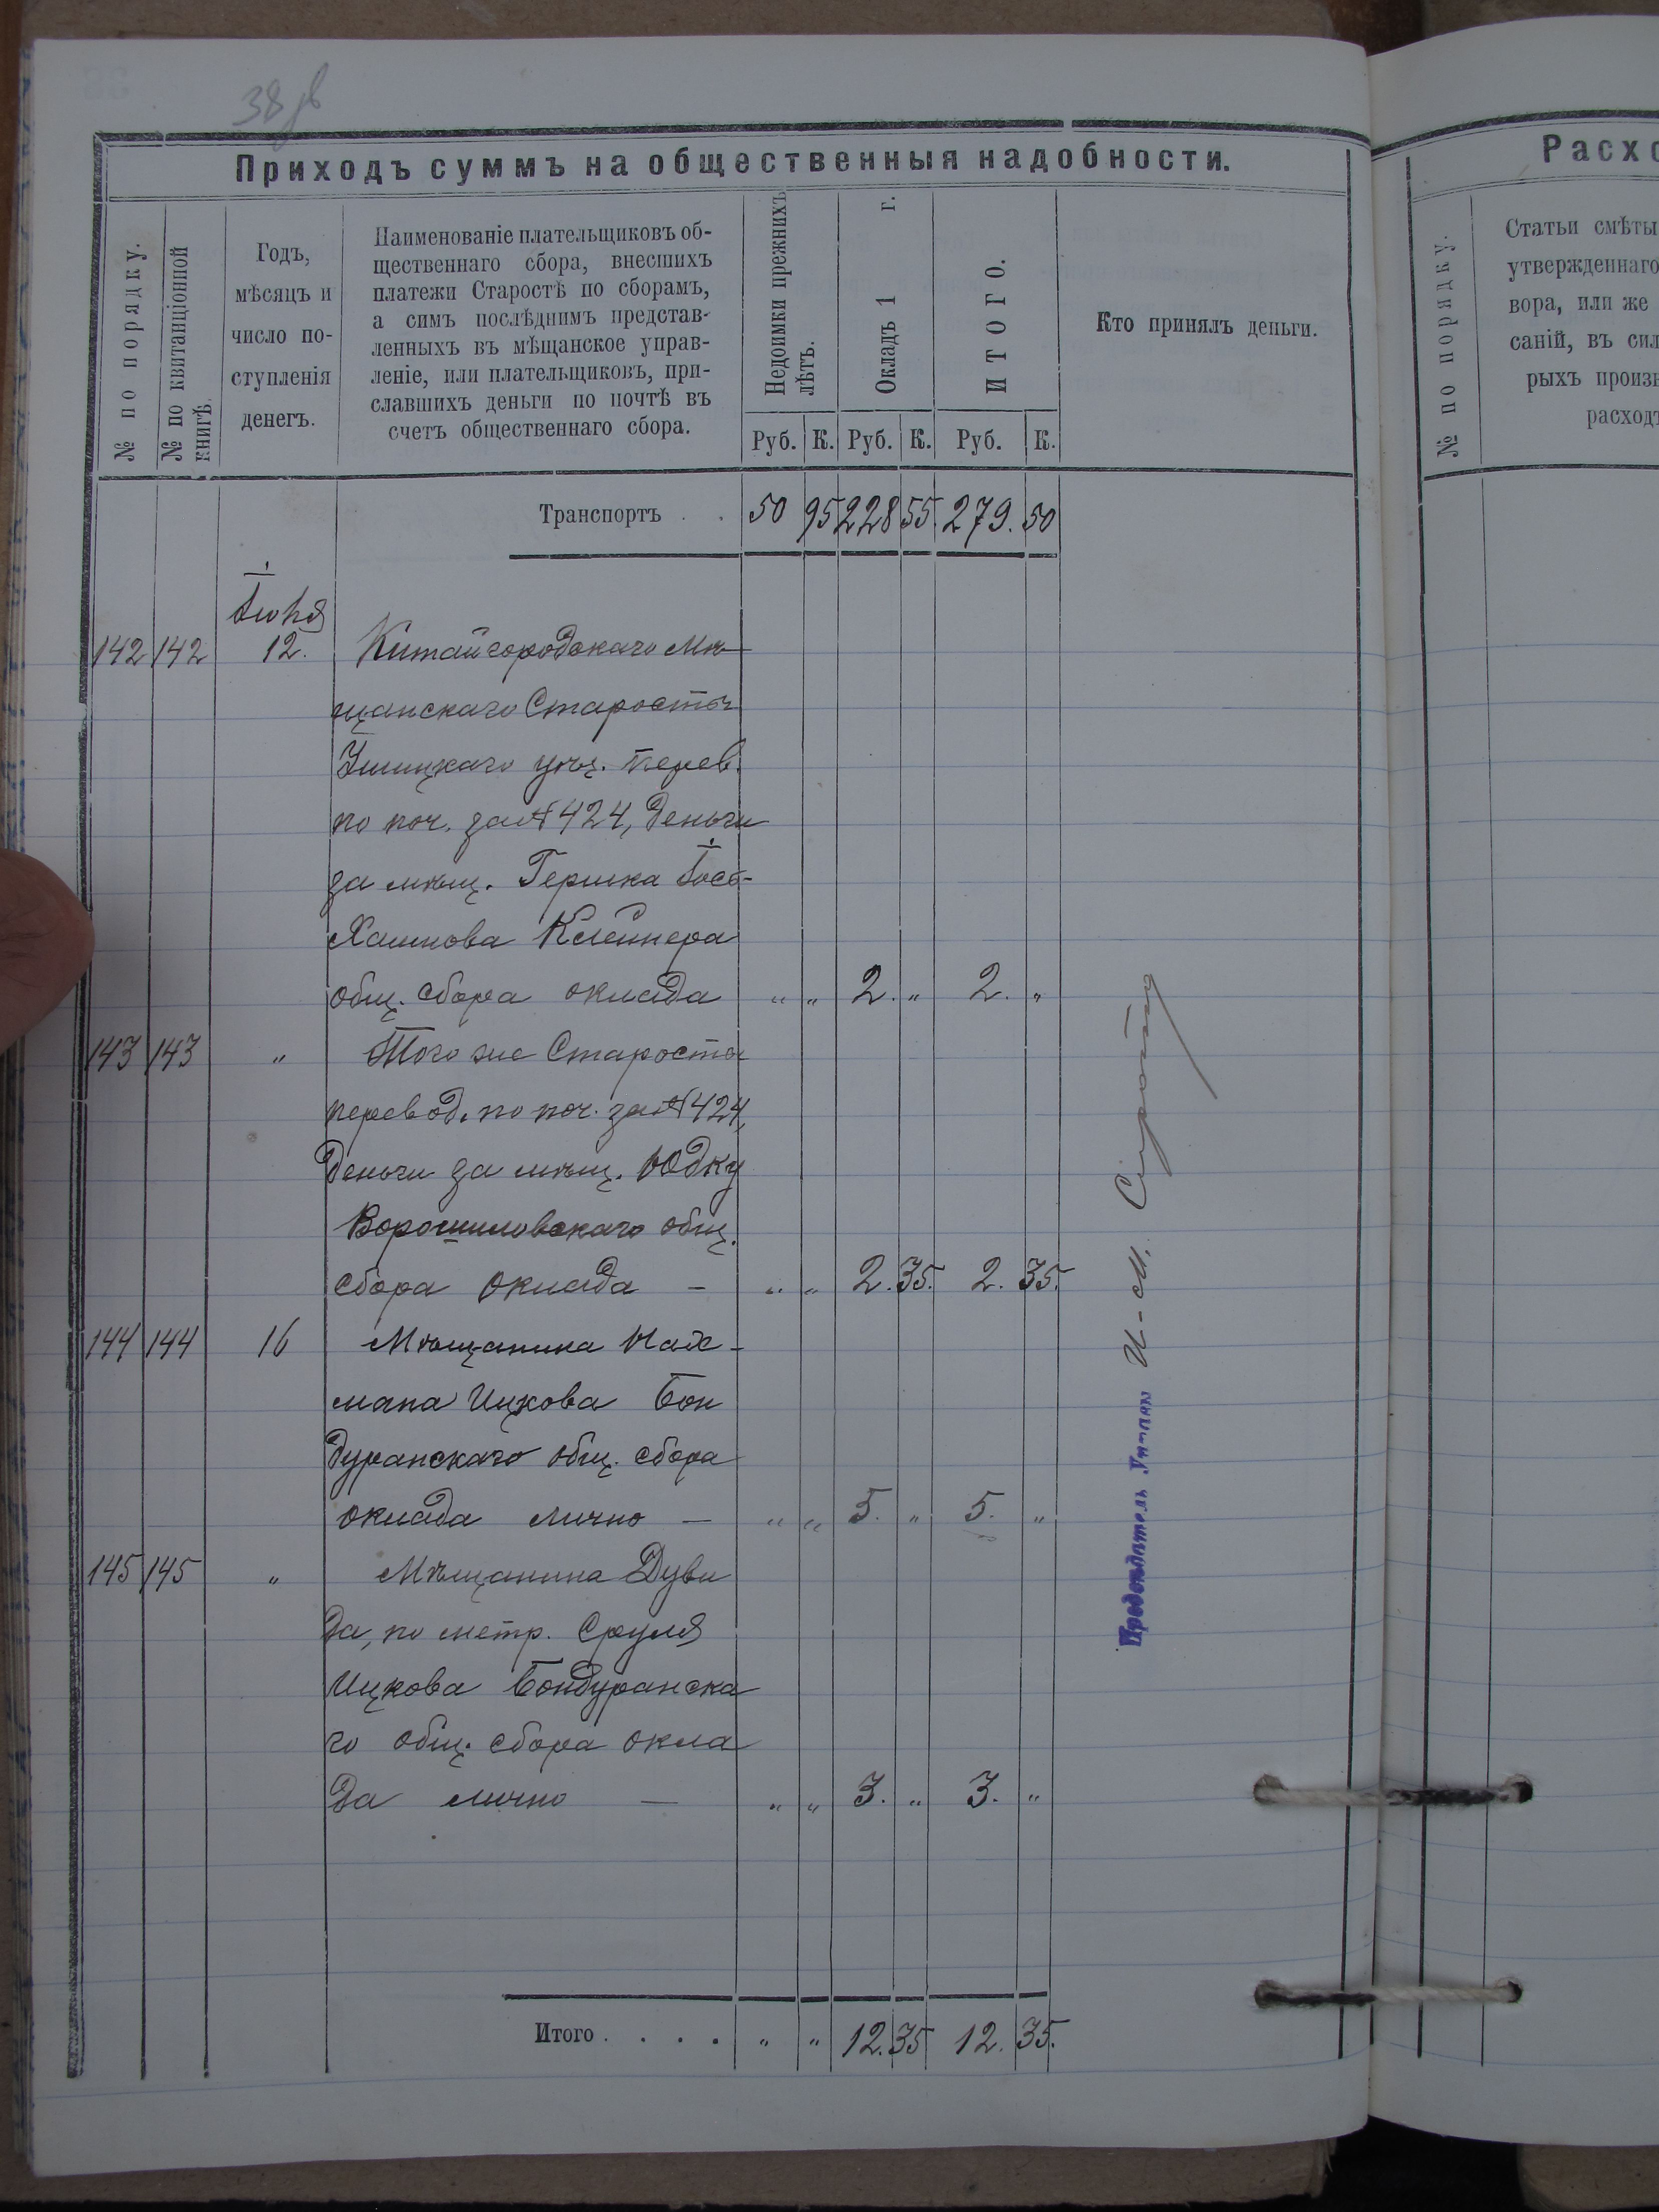 38 зв
Приходъ суммъ на общественныя надобности.
№ по порядку.
№ по квитанціонной
книгѣ.
Годъ,
мѣсяцъ и
число по-
ступленія
денегъ.
Наименованіе плательщиковъ об-
щественнаго сбора, внесшихъ
платежи Старостѣ по сборамъ,
а симъ послѣднимъ представ-
ленныхъ въ мѣщанское управ-
леніе, или плательщиковъ, при-
славшихъ деньги по почтѣ въ
счетъ общественнаго сбора.
Недоимки прежнихъ
лѣтъ.
Окладъ 1 г.
ИТОГО.
Кто принялъ деньги.
Руб. К. Руб. К. Руб. К.
Транспортъ . . 50 95 228 55. 279. 50
Іюня
142 142 12. Китайгородскаго Мѣ-
щанскаго Старосты
Ушицкаго уѣз. перев.
по поч. за № 424, деньги
за мѣщ. Гершка Іось-
Хаимова Клейнера
общ. сбора оклада " " 2. " 2. "
143 143 " Того же Старосты
перевод. по поч. за № 424,
деньги за мѣщ. Юдку
Ворошиловскаго общ.
сбора оклада – " " 2. 35. 2. 35.
144 144 16 Мѣщанина Нах-
мана Ицкова Бон
дуранскаго общ. сбора
оклада лично – " " 5. " 5. "
145 145 " Мѣщанина Дуви
да, по метр. Сруля
Ицкова Бондуранска
го общ. сбора окла
да лично – " " 3. " 3. "
Итого . . . . " " 12. 35 12. 35.
И-М.
Расхо
№ по порядку.
Статьи смѣты
утвержденнаго
вора, или же
саній, въ сил
рыхъ произв
расходъ